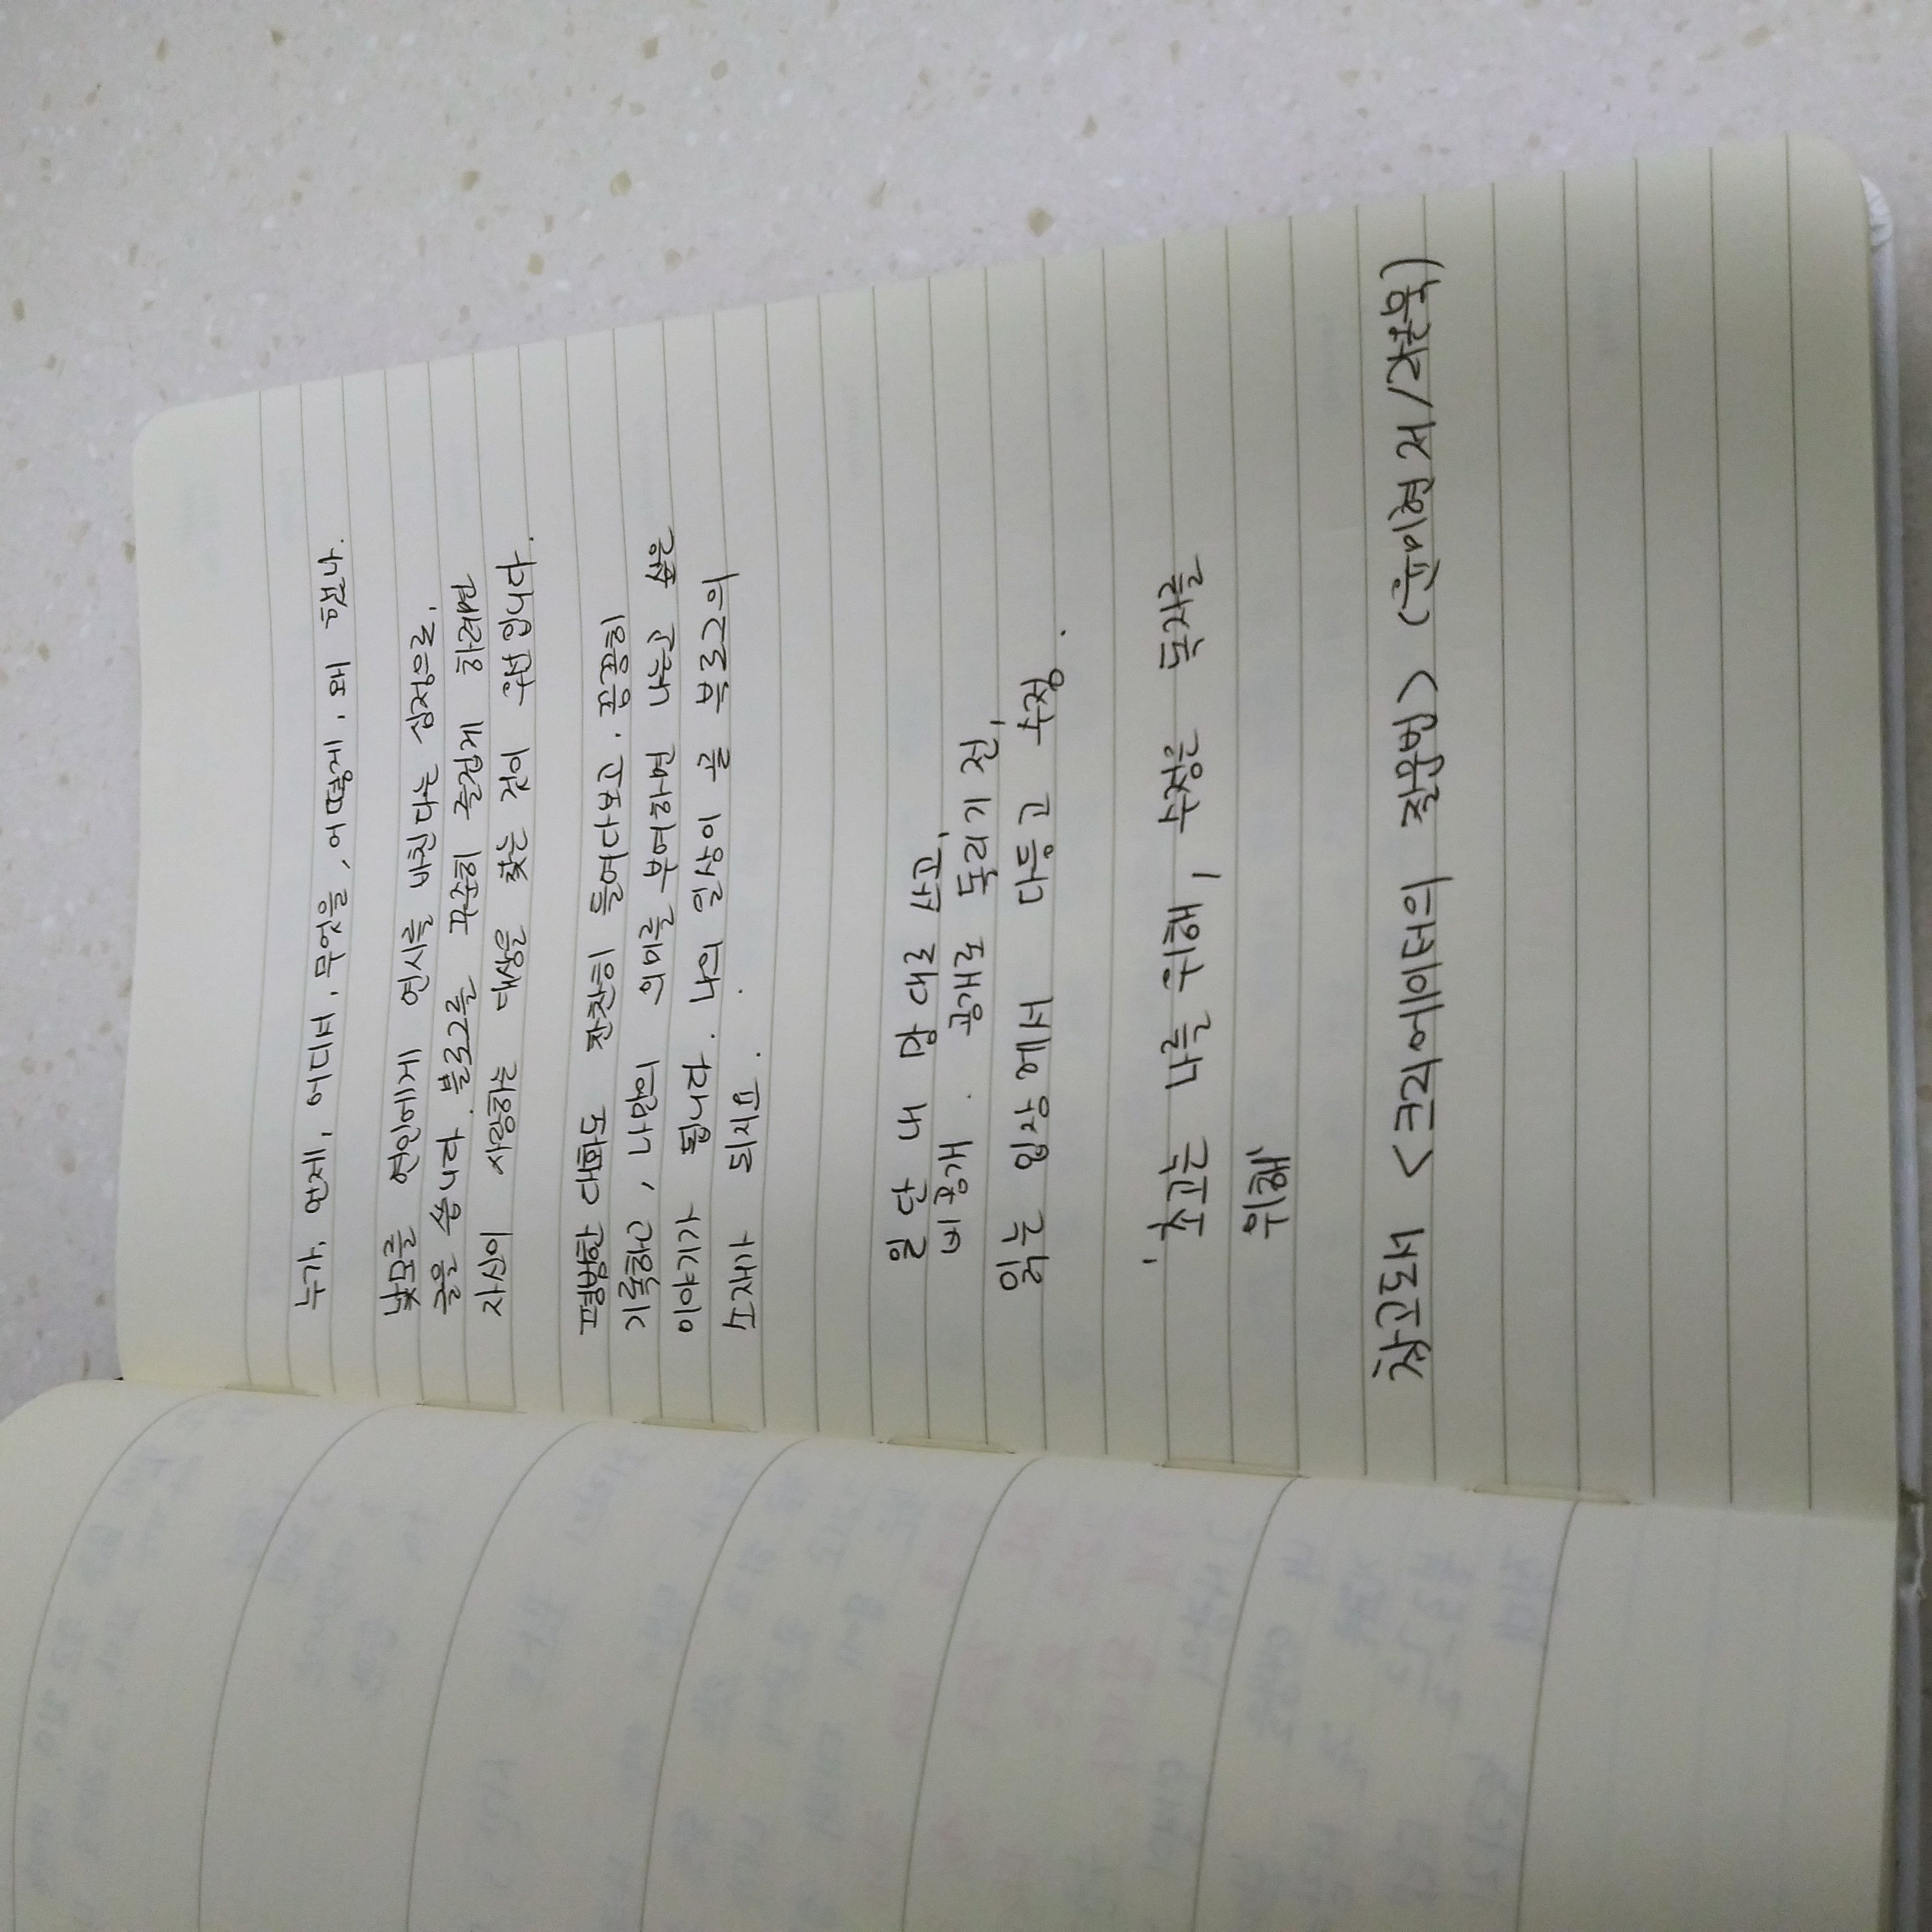 누가, 언제, 어디서, 무엇을, 어떻게, 왜 했나.
낯모를 연인에게 연시를 바친다는 심정으로,
글을 씁니다. 블로그를 꾸준히 즐겁게 하려면
자신이 사랑하는 대상을 찾는 것이 우선입니다.
평범한 대화도 찬찬히 들여다보고, 꼼꼼히
기록하고, 나만의 의미를 부여하면 나는 곧 쓸은
이야기가 됩니다. 나의 일상이 곧 블로그의
소재가 되지요.
일단 내 맘대로 산고,
비공개. 공개로 돌리기 전,
읽는 입장에서 다듬고 수정.
'초고는 나를 위해, 수정은 독자를
위해'
참고도서 <크리에이터의 질문법> (윤미현 저/라온북)